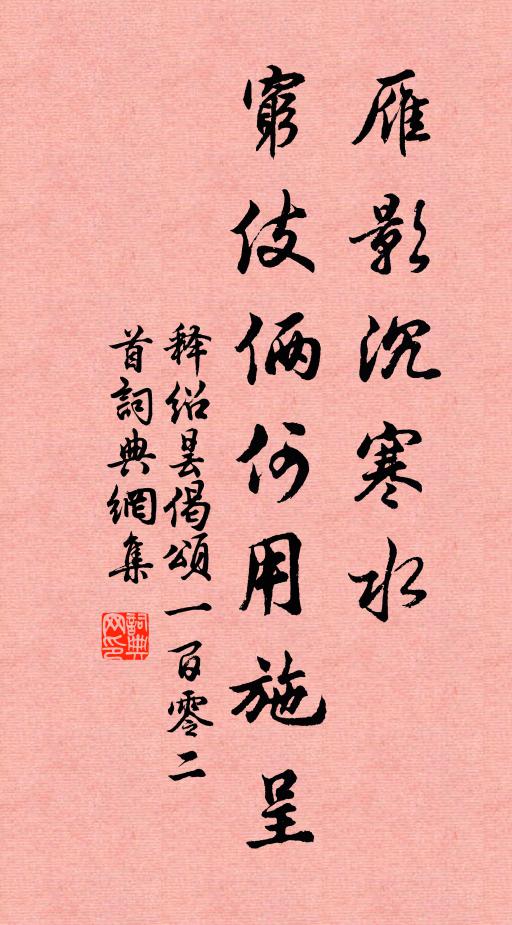 雁影沉寒水
窮伎倆何用施呈
释绍昙偈頌一百零二
首詞典網集
詞典
网印